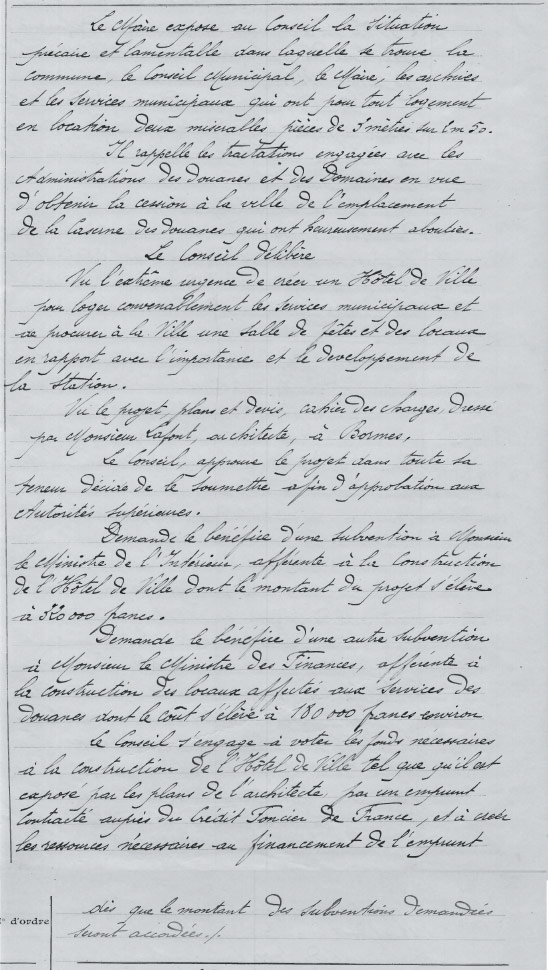 Le Maire expose au Conseil la Situation
précaire et lamentable dans laquelle se trouve la
commune, le Conseil Municipal, le Maire, les archives
et les services municipaux qui ont pour tout logement
en location deux misérables pièces de 3 mètres sur 2m50.
Il rappelle les tractations engagées avec les
Administrations des douanes et des Domaines en vue
d'obtenir la cession à la ville de l'emplacement
de la Caserne des douanes qui ont heureusement abouties.
Le Conseil délibère
Vu l'extrême urgence de créer un Hôtel de Ville
pour loger convenablement les services municipaux et
de procurer à la Ville une salle de fêtes et des locaux
en rapport avec l'importance et le développement de
la Station.
Vu le projet, plans et devis, cahier des charges dressé
par Monsieur Lafont, architecte, à Bormes,
Le Conseil, approuve le projet dans toute sa
teneur décide de le soumettre afin d'approbation aux
Autorités supérieures.
Demande le bénéfice d'une subvention à Monsieur
le Ministre de l'Intérieur, afférente à la construction
de l'Hôtel de Ville dont le montant du projet s'élève
à 320 000 francs.
Demande le bénéfice d'une autre subvention
à Monsieur le Ministre des Finances, afférente à
la construction des locaux affectés aux Services des
douanes dont le coût s'élève à 180 000 francs environ
Le Conseil s'engage à voter les fonds nécessaires
à la construction de l'Hôtel de Ville tel que qu'il est
exposé par les plans de l'architecte, par un emprunt
contracté auprès du Crédit Foncier de France, et à créer
les ressources nécessaires au financement de l'emprunt
dès que le montant des subventions demandées
seront accordées./.
d'ordre